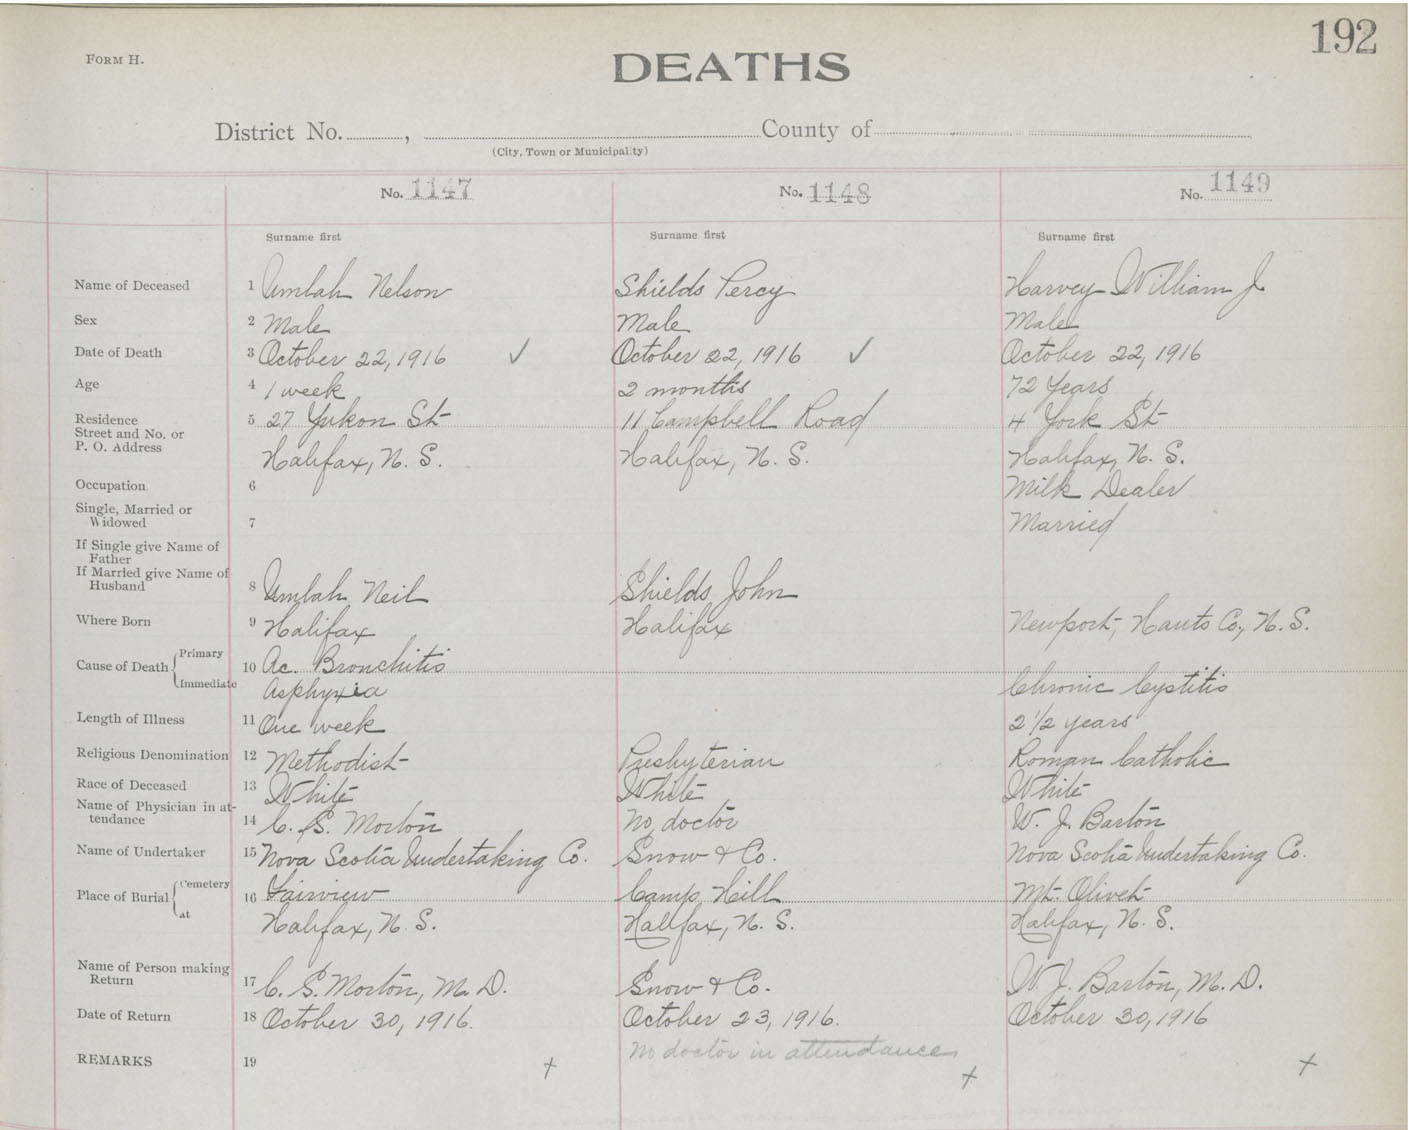 192
FORM H.
DEATHS
District No. , County of
(City, Town or Municipality)
No. 1147 No. 1148 No. 1149
Surname first Surname first Surname first
Name of Deceased 1 Umlah Nelson Shields Percy Harvey William J
Sex 2 Male Male Male
Date of Death 3 October 22, 1916 ✓ October 22, 1916 ✓ October 22, 1916
Age 4 1 week 2 months 72 Years
Residence
Street and No. or 5 27 Yukon St 11 Campbell Road 4 York St
P. O. Address Halifax, N. S. Halifax, N. S. Halifax, N. S.
Occupation 6 Milk Dealer
Single, Married or
Widowed 7 Married
If Single give Name of
Father
If Married give Name of
Husband 8 Umlah Neil Shields John
Where Born 9 Halifax Halifax Newport, Hants Co., N. S.
Cause of Death Primary 10 Ac. Bronchitis
Immediate Asphyxia Chronic Cystitis
Length of Illness 11 One week 2 1/2 years
Religious Denomination 12 Methodist Presbyterian Roman Catholic
Race of Deceased 13 White White White
Name of Physician in at-
tendance 14 C. S. Morton No doctor W. J. Barton
Name of Undertaker 15 Nova Scotia Undertaking Co. Snow & Co. Nova Scotia Undertaking Co.
Place of Burial Cemetery 16 Fairview Camp Hill Mt. Olivet
at Halifax, N. S. Halifax, N. S. Halifax, N. S.
Name of Person making
Return 17 C. S. Morton, M. D. Snow & Co. W. J. Barton, M. D.
Date of Return 18 October 30, 1916. October 23, 1916. October 30, 1916
REMARKS 19 + No doctor in attendance + +